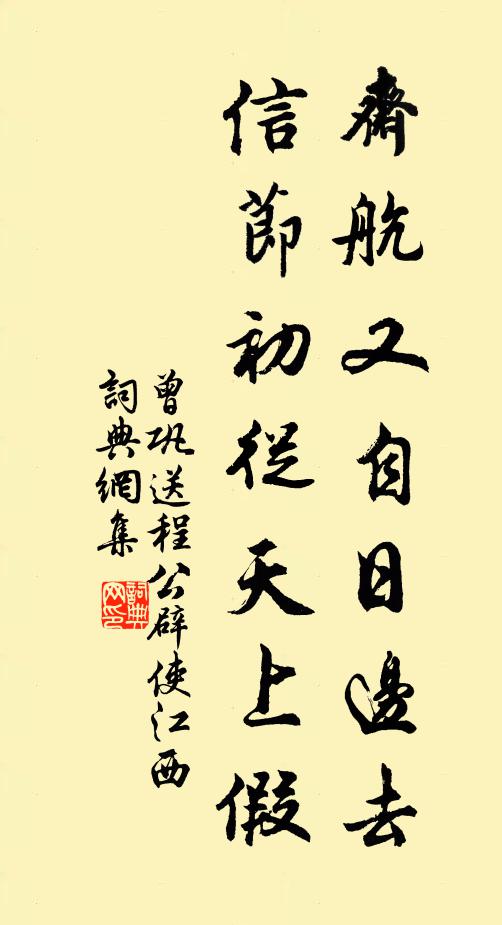 齋航又自日邊去
信節初從天上假
曾巩送程公辟使江西
詞典網集
詞典网印